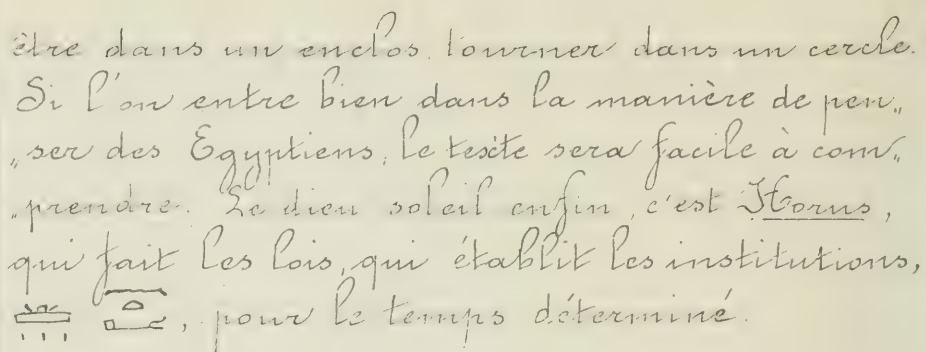 être dans un enclos, tourner dans un cercle.
Si l'on entre bien dans la manière de pen„
„ser des Egyptiens, le texte sera facile à com„
„prendre. Le dieu soleil enfin, c'est Horus,
qui fait les lois, qui établit les institutions,
, pour le temps déterminé.